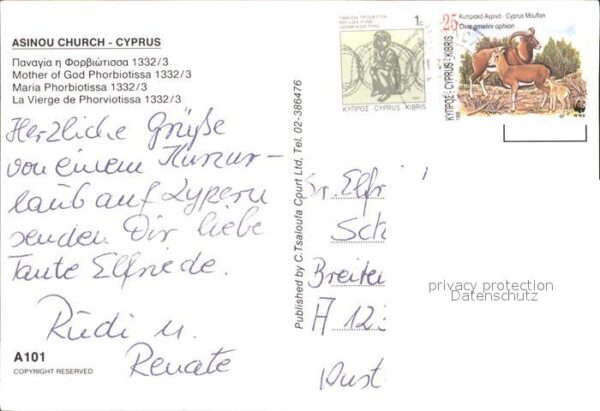 ASINOU CHURCH - CYPRUS
Παναγία η Φορβιώτισσα 1332/3
Mother of God Phorbiotissa 1332/3
Maria Phorbiotissa 1332/3
La Vierge de Phorviotissa 1332/3
Herzliche Grüße
von einem Kurzur-
laub auf Zypern
senden Dir liebe
Tante Elfriede.
Rudi u.
Renate
A101
COPYRIGHT RESERVED
Published by C.Tsaloufa Court Ltd, Tel. 02-386476
1c
ΚΥΠΡΟΣ - CYPRUS KIBRIS
25
Κυπριακό Αγρινό - Cyprus Mouflon
Ovis gmelini ophion
ΚΥΠΡΟΣ - CYPRUS - KIBRIS
1998
WWF
Elfri
Sch
Breite
A 123
Aust
privacy protection
Datenschutz